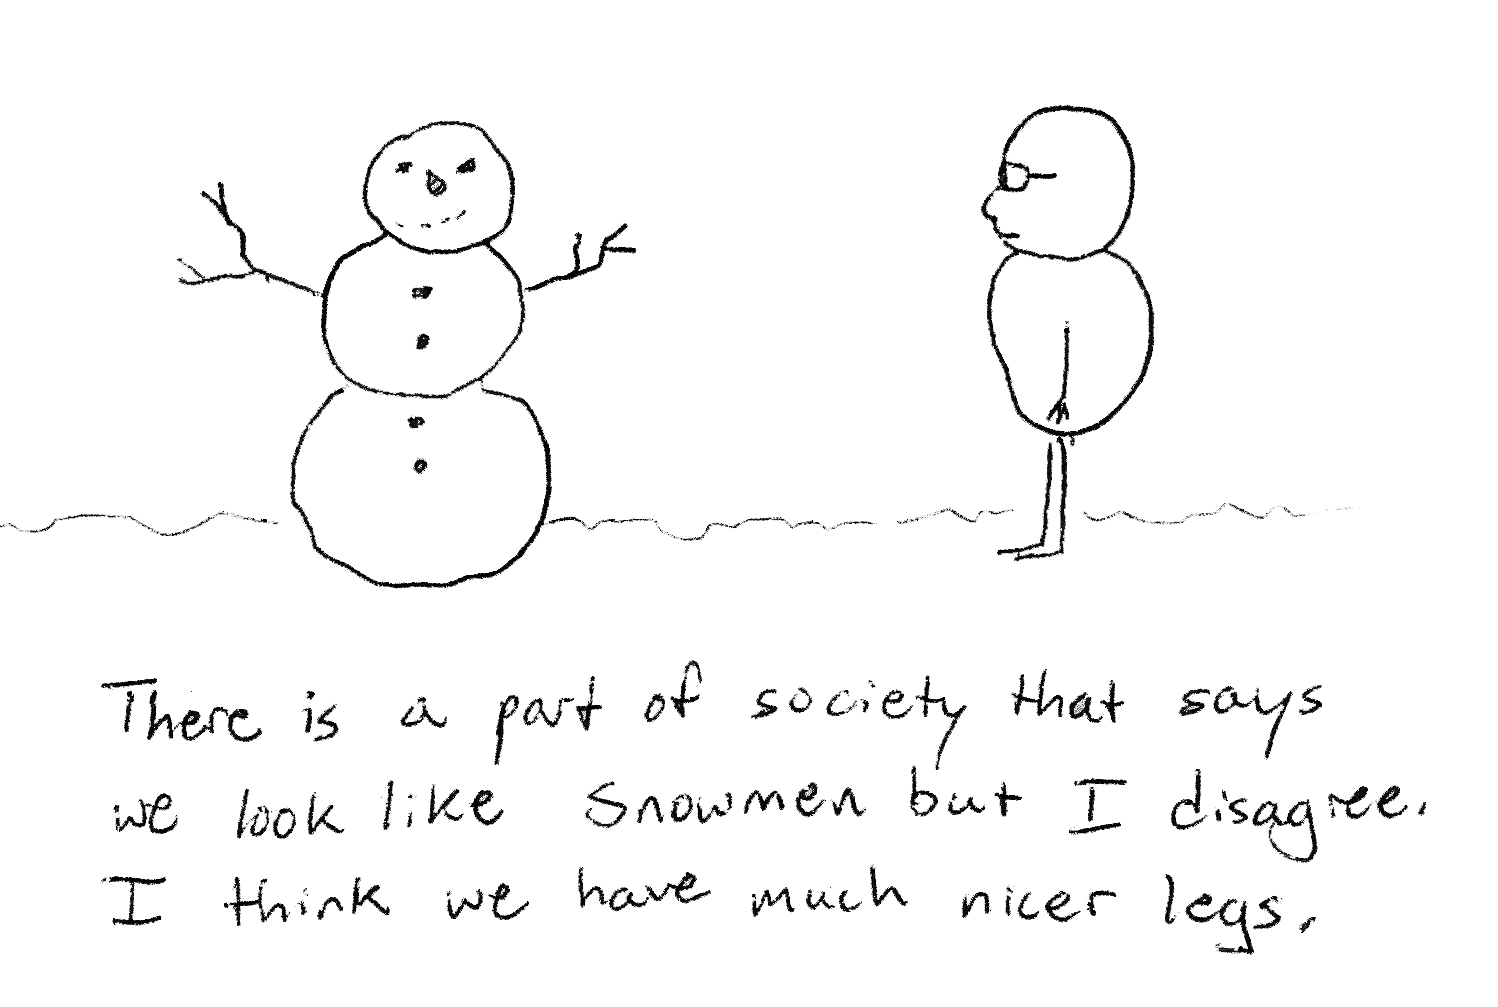 There is a part of society that says
we look like Snowmen but I disagree.
I think we have much nicer legs.